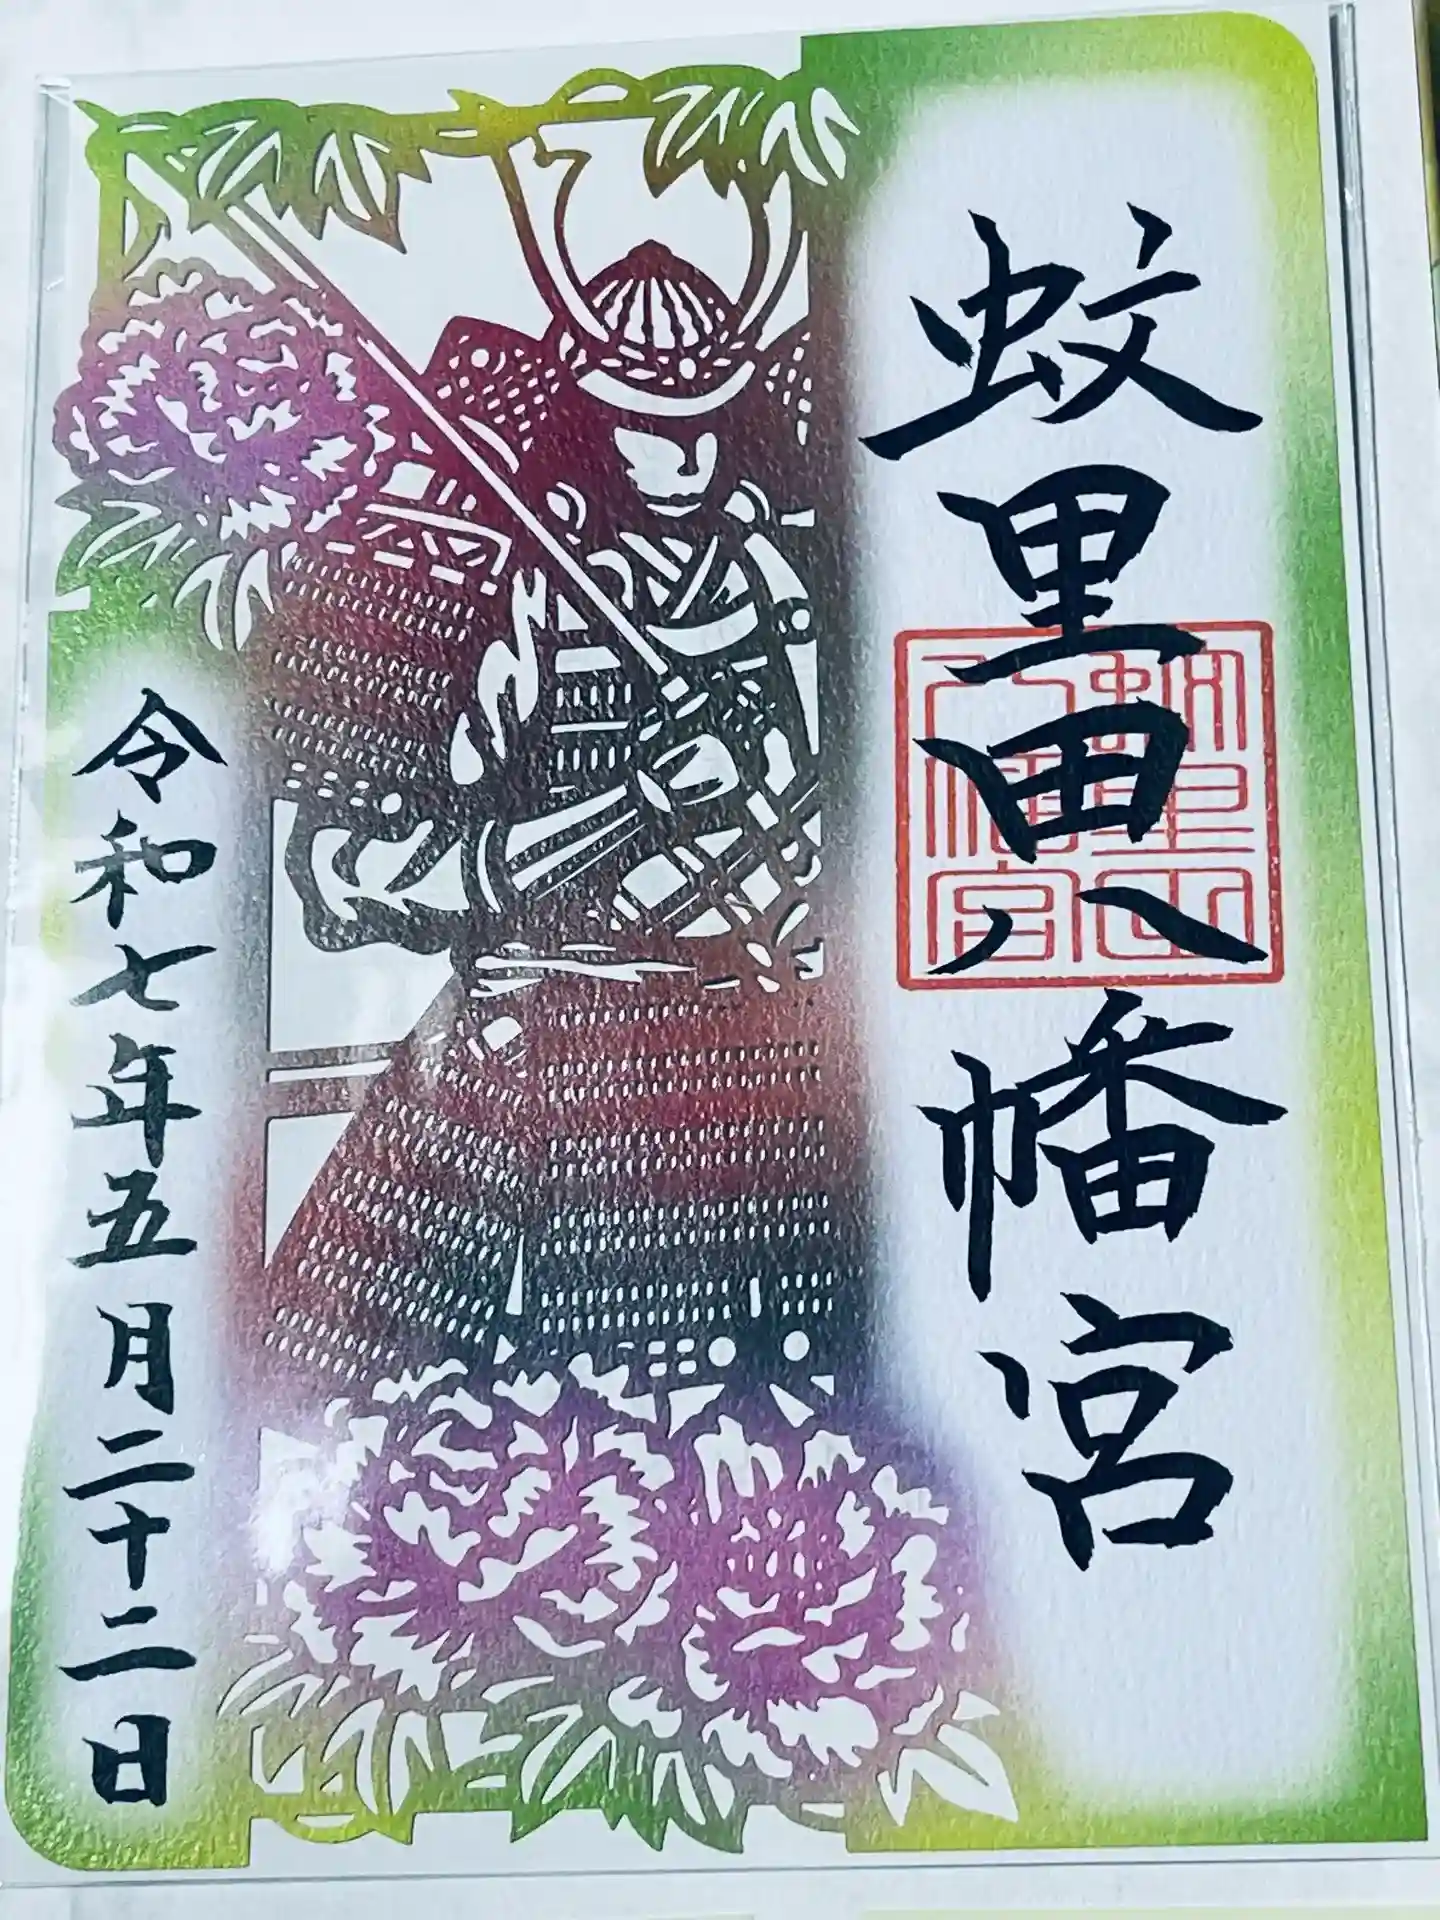 蚊里田八幡宮
蚊里田
八幡宮
令和七年五月二十二日